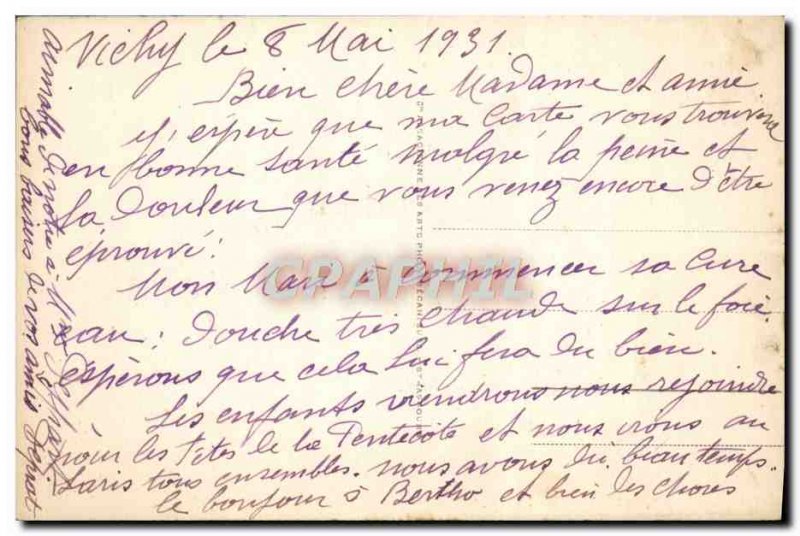 Vichy le 8 Mai 1931.
Bien chère Madame et amie
J'espère que ma Carte vous trouvera
en bonne santé malgré la peine et
la douleur que vous venez encore d'être
éprouvé.
Mon Mari à commencer sa Cure
eau: douche très chaude sur le foie.
espérons que cela lui fera du bien.
Les enfants viendrons nous rejoindre
pour les fêtes de la Pentecôte et nous irons au
Paris tous ensembles. nous avons du beau temps.
le bonjour à Bertho et bien des choses
aimable de notre à Mr
bons baisers de vos amis
CPAPHIL